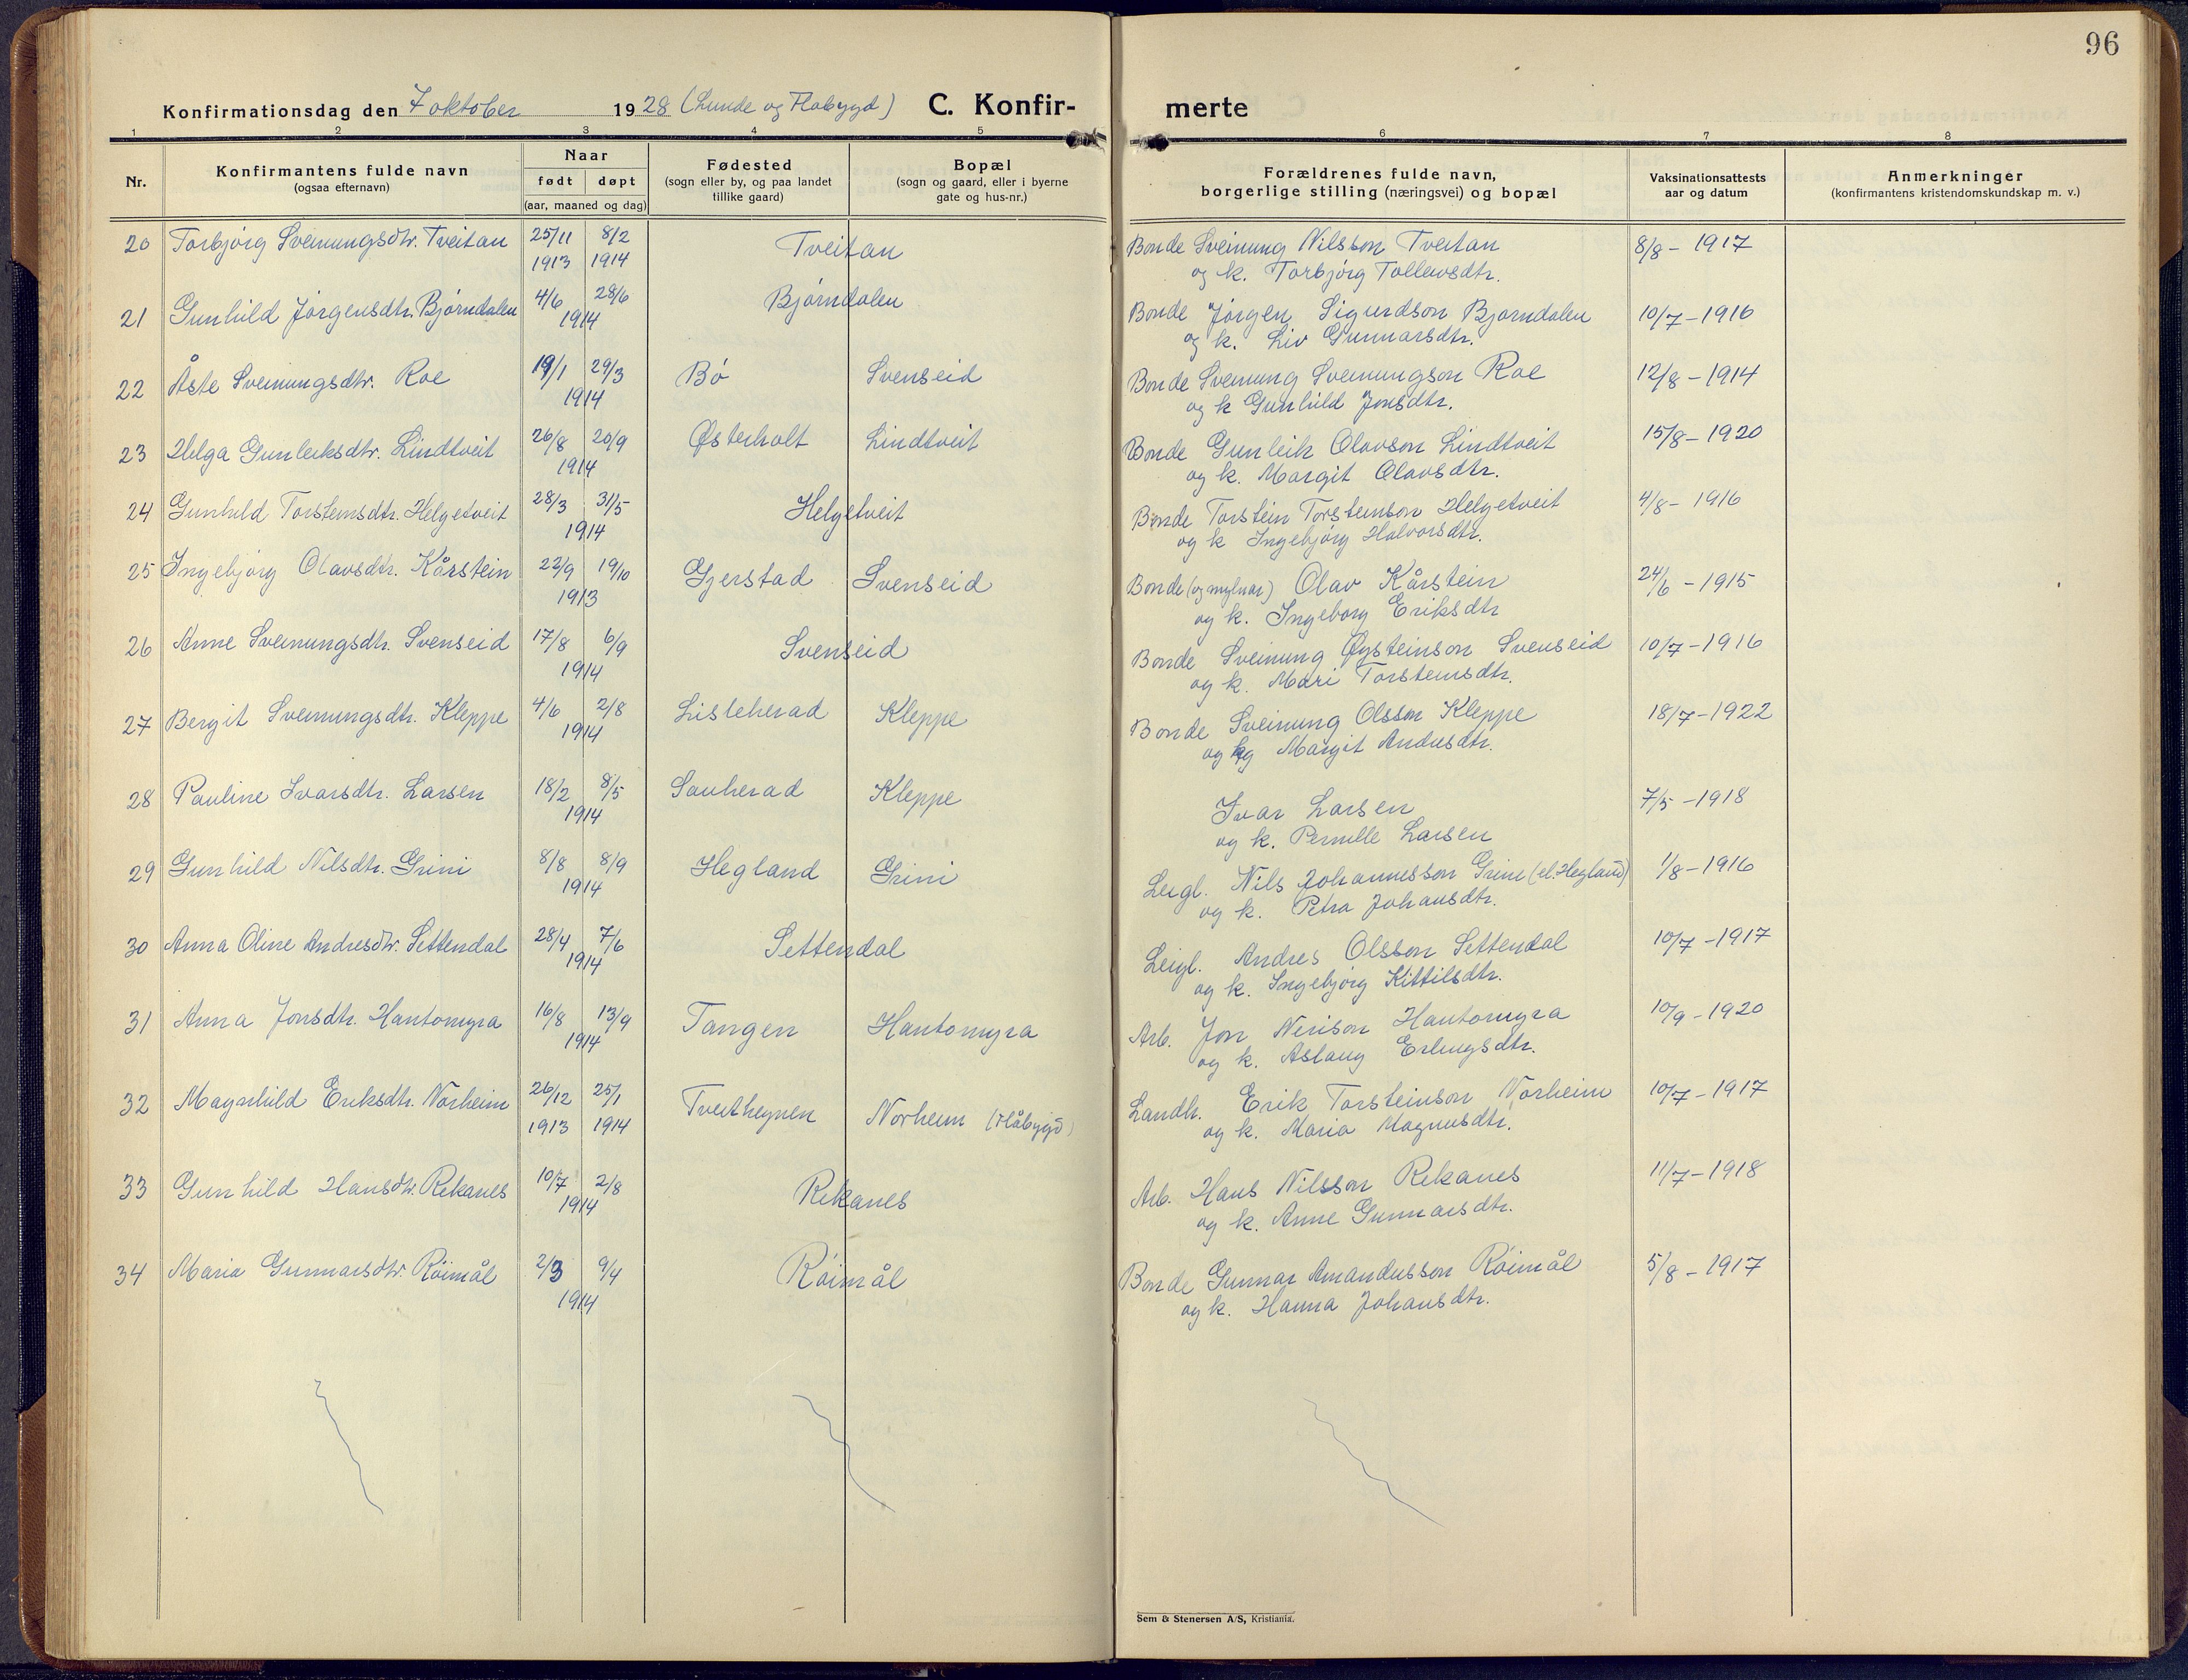 96
Konfirmationsdag den 7 oktober 1928 (Lunde og Flabygd) C. Konfir- merte
1 2 3 4 5 6 7 8
Nr.
Konfirmantens fulde navn
(ogsaa efternavn)
Naar
født døpt
(aar, maaned og dag)
Fødested
(sogn eller by, og paa landet
tillike gaard)
Bopæl
(sogn og gaard, eller i byerne
gate og hus-nr.)
Forældrenes fulde navn,
borgerlige stilling (næringsvei) og bopæl
Vaksinationsattests
aar og datum
Anmerkninger
(konfirmantens kristendomskundskap m. v.)
20 Torbjørg Sveinungsdtr. Tveitan 25/11 8/2 Tveitan Bonde Sveinung Nilsson Tveitan 8/8 - 1917
1913 1914 og k. Torbjørg Tollevsdtr.
21 Gunhild Jørgensdtr. Bjørndalen 4/6 28/6 Bjørndalen Bonde Jørgen Sigurdson Bjørndalen 10/7 - 1916
1914 og k. Liv Gunnarsdtr.
22 Åste Sveinungsdtr. Roe 19/1 29/3 Bø Svenseid Bonde Sveinung Sveinungson Roe 12/8 - 1914
1914 og k Gunhild Jonsdtr.
23 Helga Gunleiksdtr. Lindtveit 26/8 20/9 Østerholt Lindtveit Bonde Gunleik Olavson Lindtveit 15/8 - 1920
1914 og k. Margit Olavsdtr.
24 Gunhild Torsteinsdtr. Helgetveit 28/3 31/5 Helgetveit Bonde Torstein Torsteinson Helgetveit 4/8 - 1916
1914 og k Ingebjørg Halvorsdtr.
25 Ingebjørg Olavsdtr. Kårstein 22/9 19/10 Gjerstad Svenseid Bonde (og mylnar) Olav Kårstein 24/6 - 1915
1913 og k. Ingeborg Eriksdtr
26 Anne Sveinungsdtr. Svenseid 17/8 6/9 Svenseid Bonde Sveinung Øysteinson Svenseid 10/7 - 1916
1914 og k. Mari Torsteinsdtr.
27 Bergit Sveinungsdtr. Kleppe 4/6 2/8 Lisleherad Kleppe Bonde Sveinung Olsson Kleppe 18/7 - 1922
1914 og kg Margit Andresdtr.
28 Pauline Ivarsdtr. Larsen 18/2 8/5 Sauherad Kleppe Ivar Larsen 7/5 - 1918
1914 og k. Pernille Larsen
29 Gunhild Nilsdtr. Grini 8/8 8/9 Hegland Grini Leigl. Nils Johannesson Grini (el. Hegland) 1/8 - 1916
1914 og k. Petra Johansdtr.
30 Anna Oline Andresdtr. Settendal 28/4 7/6 Settendal Leigl. Andres Olsson Settendal 10/7 - 1917
1914 og k. Ingebjørg Kittilsdtr.
31 Anna Jonsdtr. Hantomyra 16/8 13/9 Tangen Hantomyra Arb. Jon Nerison Hantomyra 10/9 - 1920
1914 og k. Aslaug Erlingsdtr.
32 Magnhild Eriksdtr. Norheim 26/12 25/1 Tveithegnen Norheim (Flåbygd) Landh. Erik Torsteinson Norheim 10/7 - 1917
1913 1914 og k. Maria Magnusdtr.
33 Gunhild Hansdtr. Rekanes 10/7 2/8 Rekanes Arb. Hans Nilsson Rekanes 11/7 - 1918
1914 og k. Anne Gunnarsdtr.
34 Maria Gunnarsdtr. Røimål 2/3 9/4 Røimål Bonde Gunnar Amandusson Røimål 5/8 - 1917
1914 og k. Hanna Johansdtr.
Sem & Stenersen A/S, Kristiania.